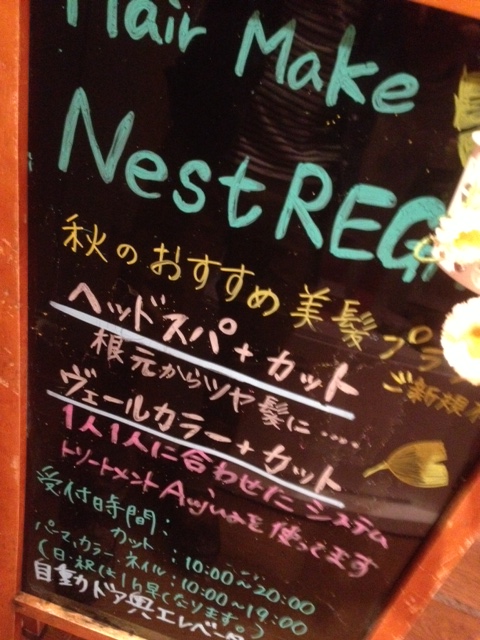 Hair Make
Nest REG
秋のおすすめ美髪プラ
ご新規
ヘッドスパ+カット
根元からツヤ髪に....
ヴェールカラー+カット
1人1人に合わせたシステム
トリートメント Aujuaを使ってます
受付時間:
カット : 10:00〜20:00
パーマ、カラー ネイル : 10:00〜19:00
(日・祝は1h早くなります。)
自動ドア奥エレベータ